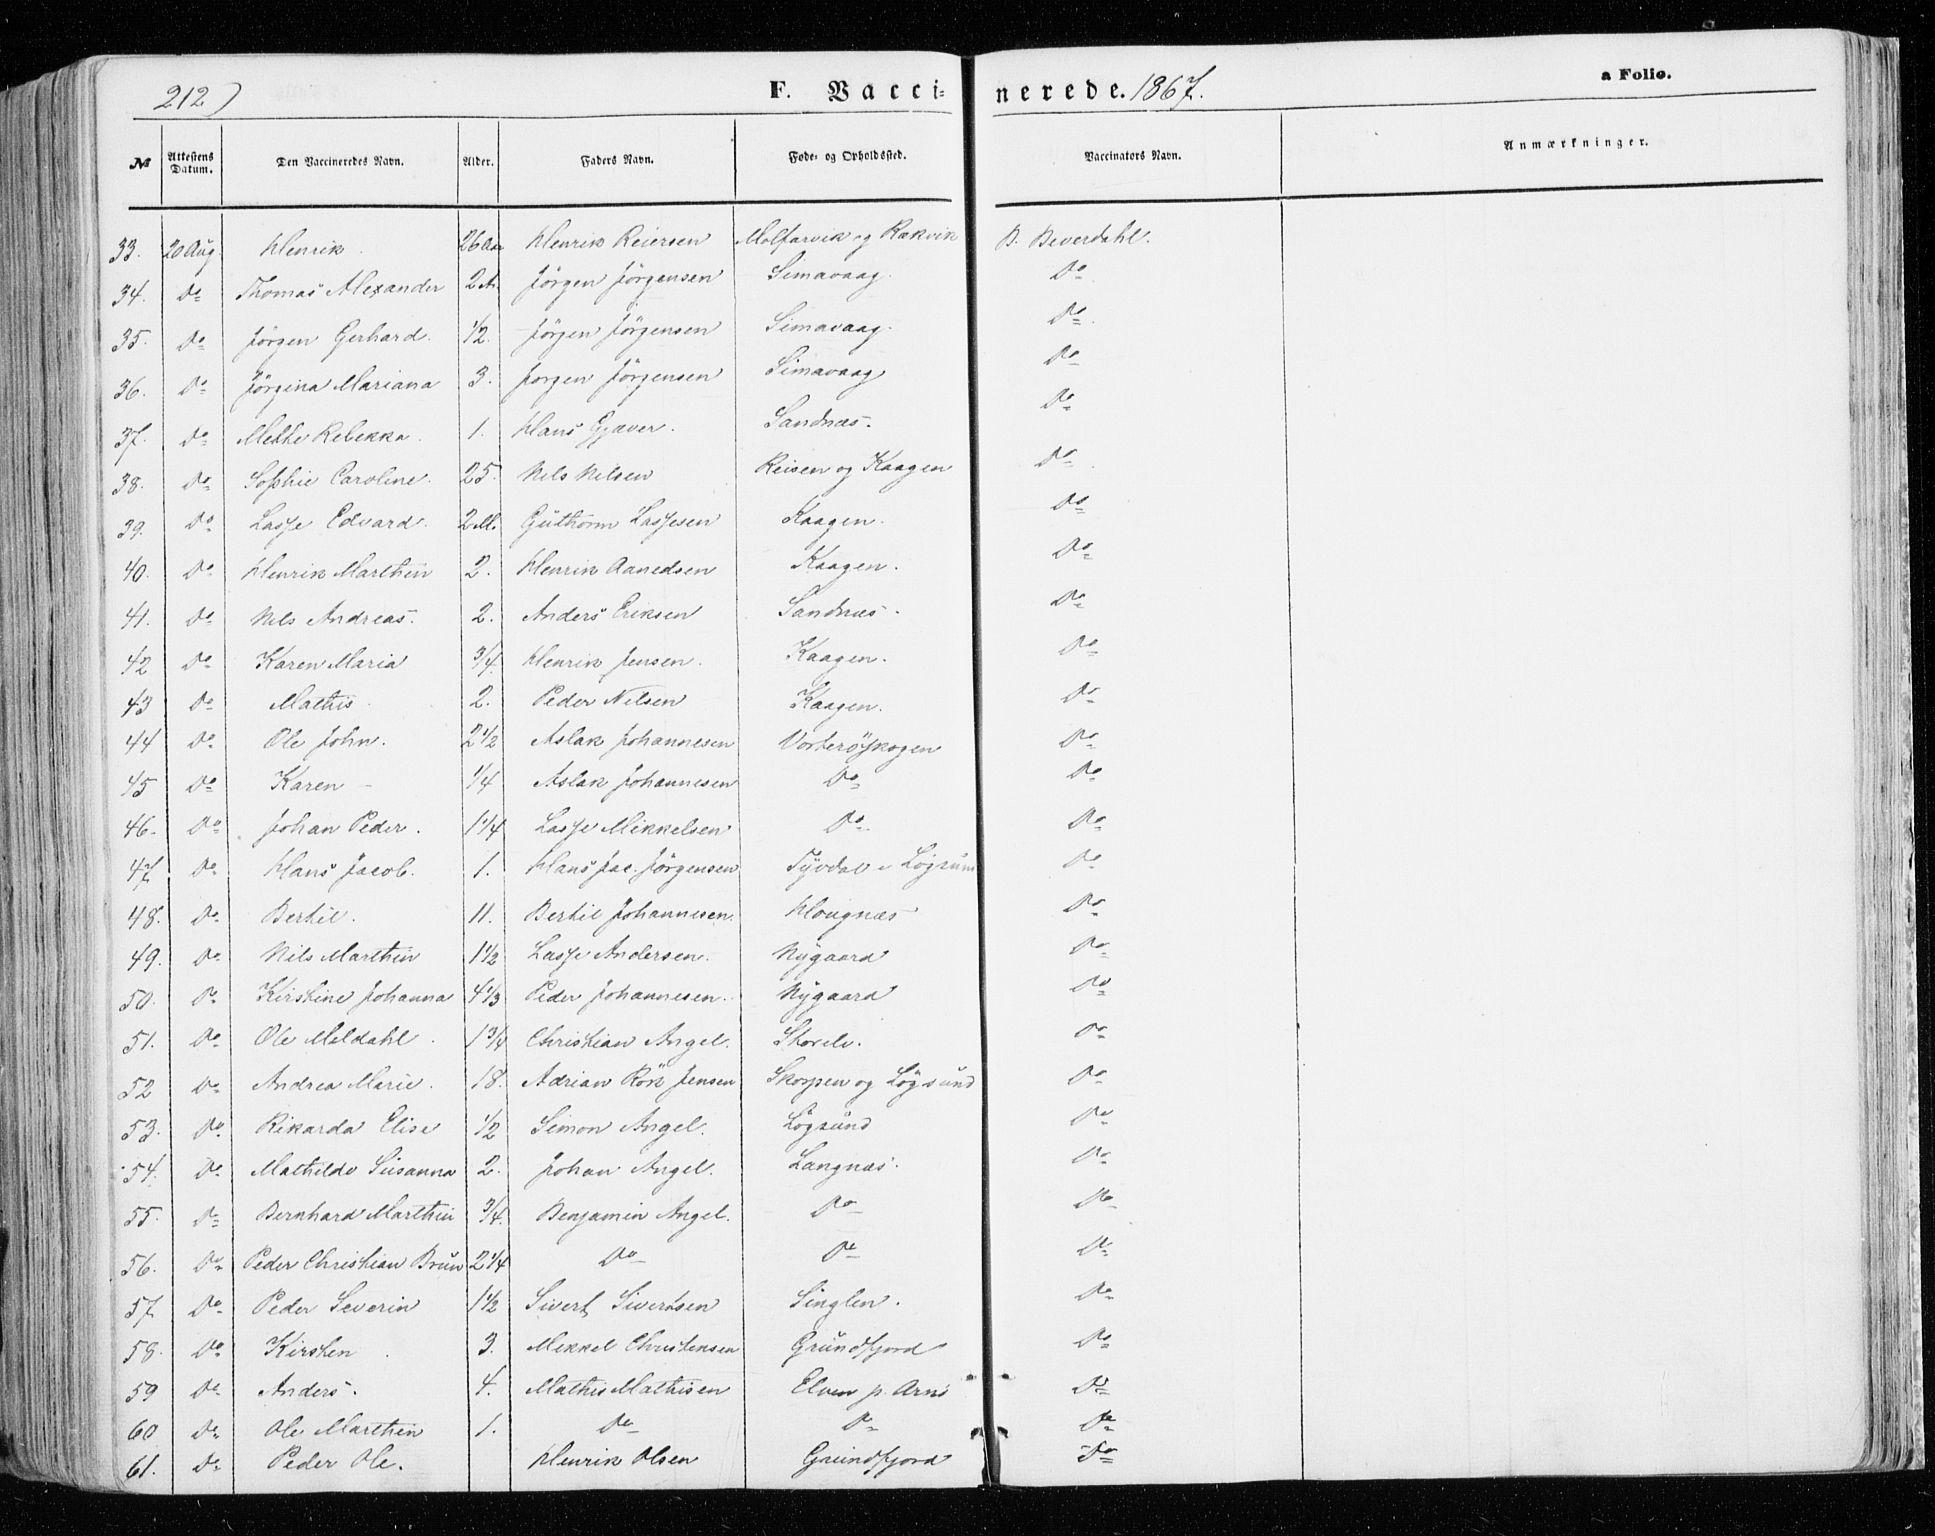 212)
F. Vaccinerede. 1867.
a Folio.
№ Attestens Datum. Den Vaccineredes Navn. Alder. Faders Navn. Føde- og Opholdssted. Vaccinators Navn. Anmærkninger.
33. 20 Aug Henrik. 26 Aar Henrik Reiersen Molfarvik og Rakvik B. Beverdahl.
34. Do Thomas Alexander 2 A. Jörgen Jörgensen Simavaag. Do
35. Do Jörgen Gerhard. 1/2. Jörgen Jörgensen Simavaag. Do
36. Do Jörgina Mariana 3. Jorgen Jörgensen Simavaag Do
37. Do Methe Rebekka. 1. Hans Gjæver. Sandnæs. Do
38. Do Sophie Caroline. 25. Nils Nilsen Reisen og Kaagen Do
39. Do Lasse Edvard. 2 M. Guthorm Lassesen Kaagen. Do
40. Do Henrik Marthin 2. Henrik Aanedsen Kaagen. Do
41. Do Nils Andreas. 2. Anders Eriksen Sandnæs. Do
42 Do Karen Maria 3/4. Henrik Jensen. Kaagen. Do
43 Do Mathis 2. Peder Nilsen Kaagen. Do
44 Do Ole John. 2 1/2 Aslak Johannesen Vorteröskogen Do
45 Do Karen – 1/4 Aslak Johannesen Do Do
46. Do Johan Peder. 1 1/4 Lasse Mikkelsen Do Do
47 Do Hans Jacob. 1. Hans Jac. Jörgensen Tyvdal Løgsun Do
48. Do Bertil. 11. Bertil Johannesen. Hougnæs Do
49. Do Nils Marthin 1 1/2 Lasse Andersen. Nygaard Do
50. Do Kirstine Johanna 4 1/3 Peder Johannesen. Nygaard Do
51. Do Ole Meldahl. 1 3/4 Christian Angel. Storelv. Do
52 Do Andrea Marie. 18. Adrian Rök Jensen Skorpen og Løgsund Do
53. Do Rikarda Elise 1/2 Simon Angel. Løgsund Do
54. Do Mathilde Susanna 2. Johan Angel. Langnæs. Do
55. Do Bernhard Marthin 3/4. Benjamin Angel. Do Do
56. Do Peder Christian Brun 2 1/4 Do Do Do
57. Do Peder Severin 1 1/2 Sivert Sivertsen Singlen. Do
58. Do Kirsten. 3. Mikkel Christensen Grundfjord Do
59 Do Anders. 4. Mathis Mathisen Elven p. Arnö Do
60 Do Ole Marthin 1. Do Do Do
61. Do Peder Ole. Henrik Olsen Grundfjord Do